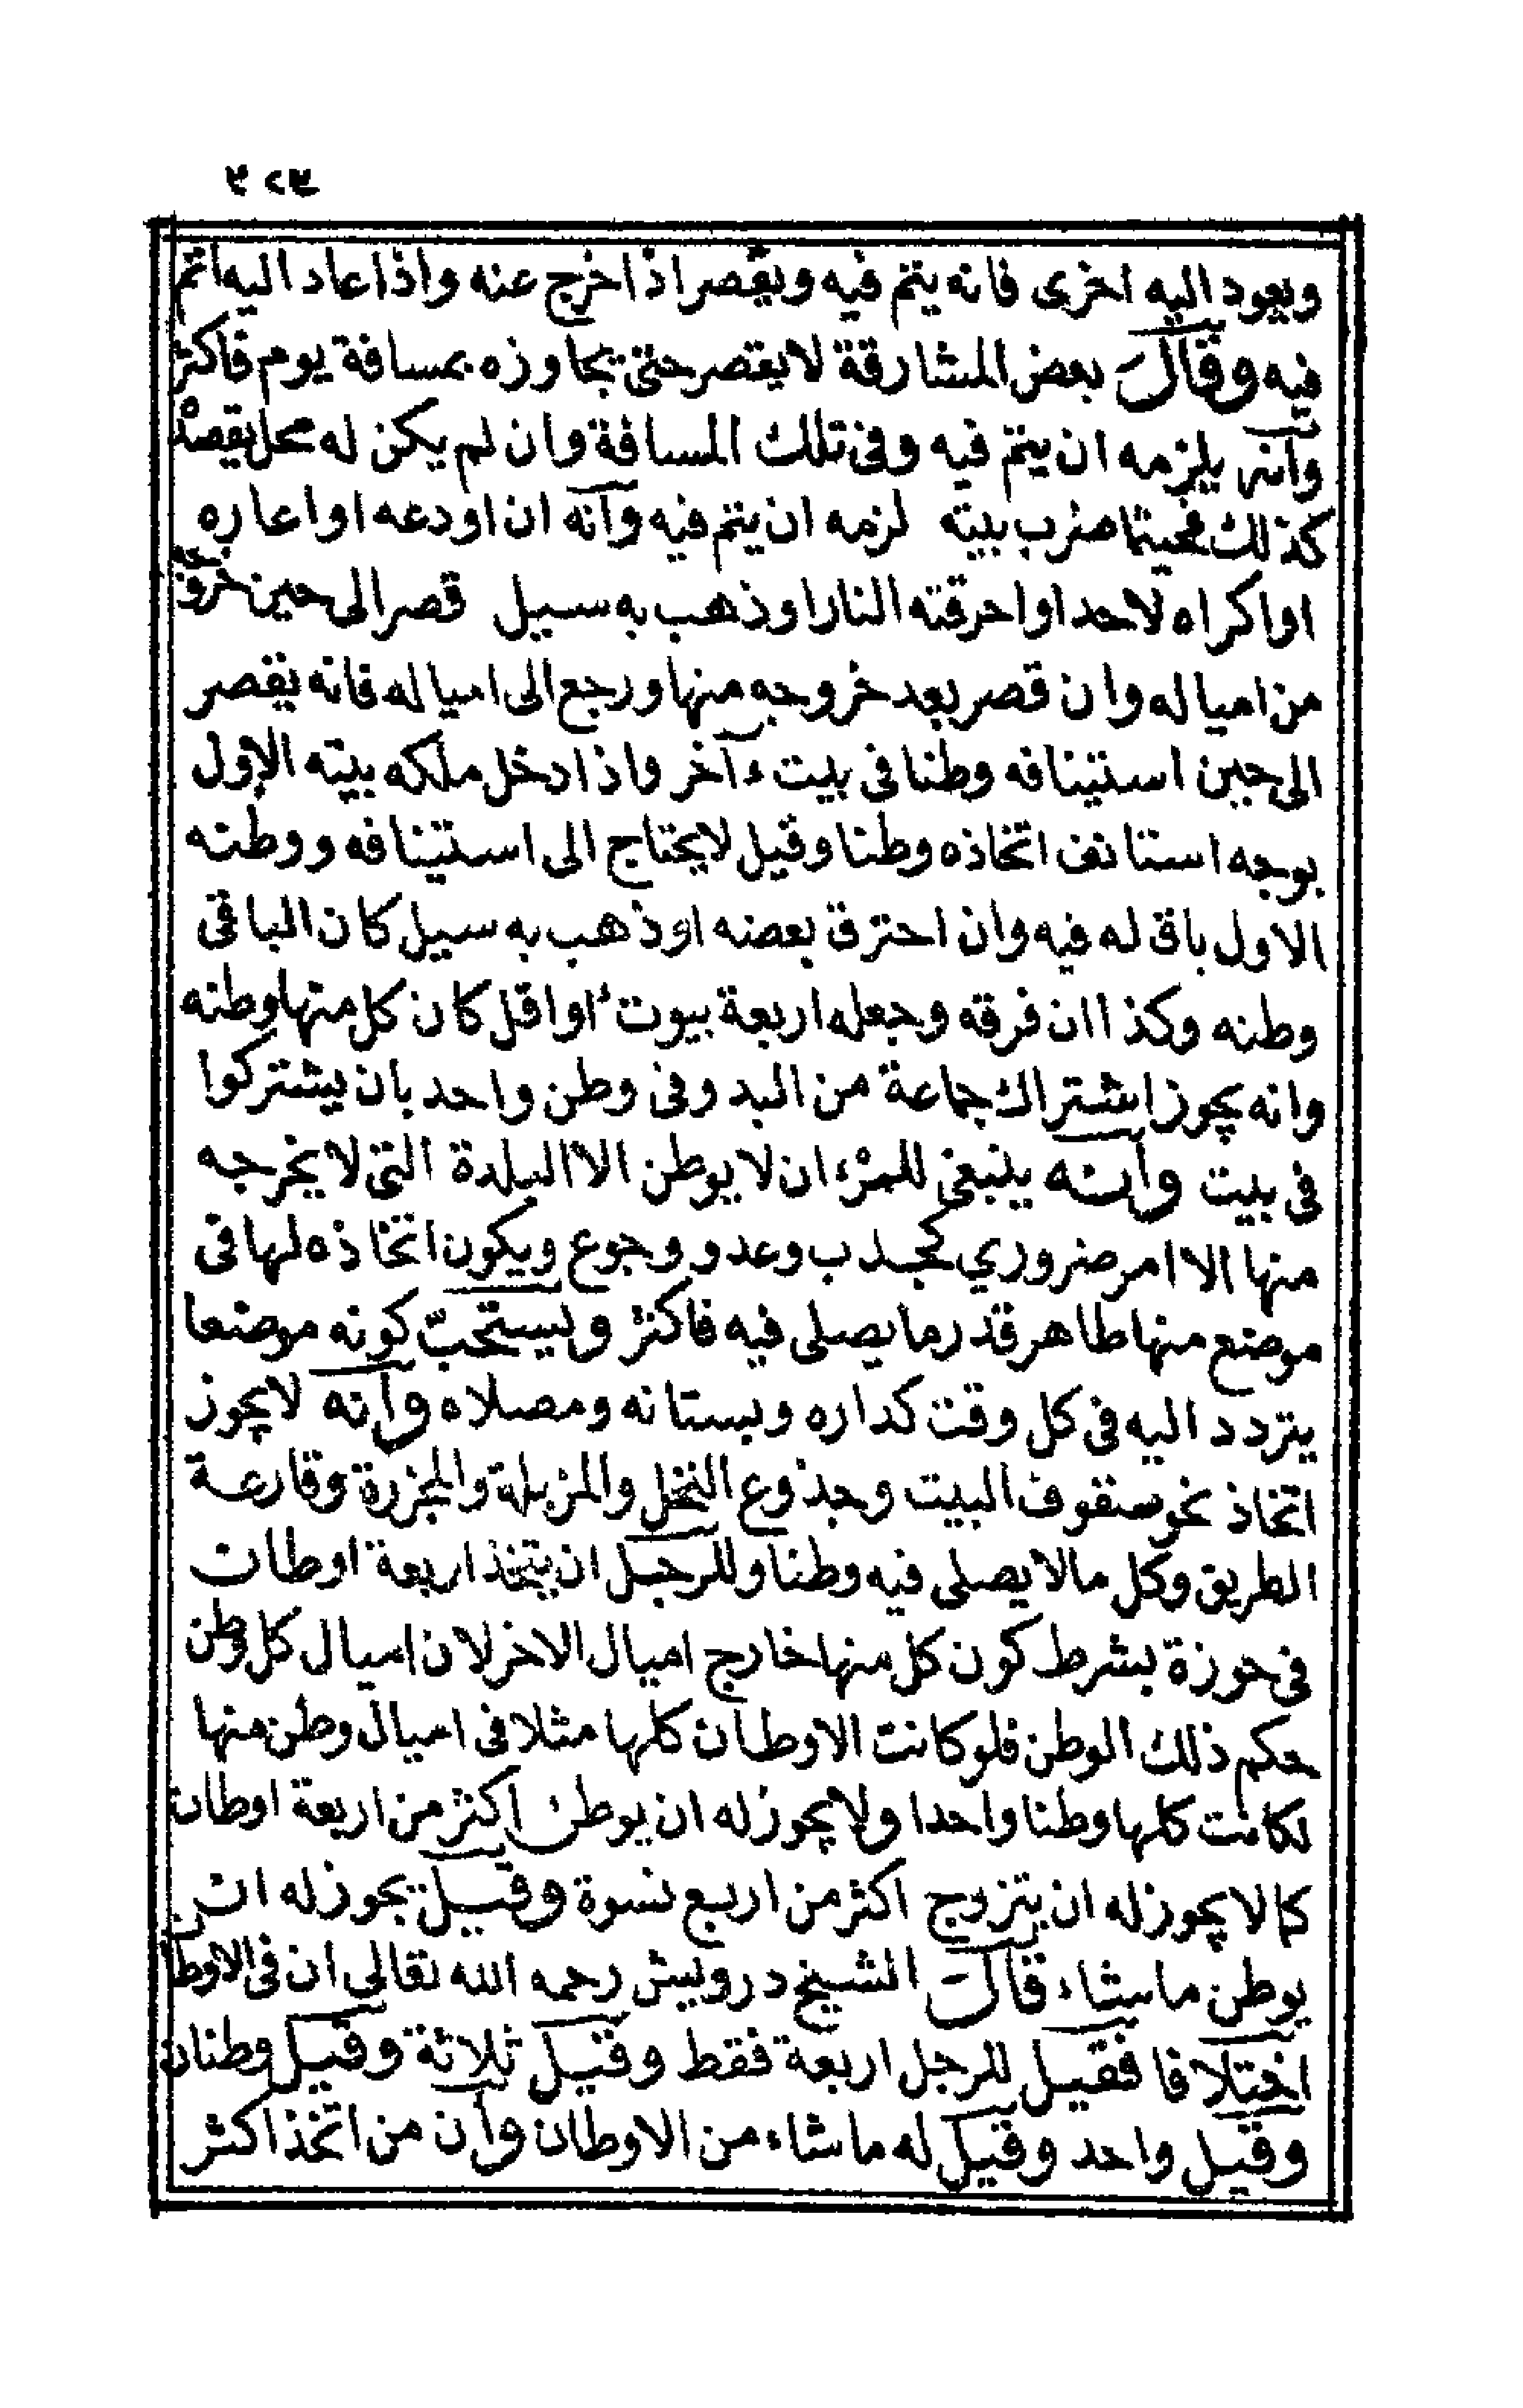 ٣٢٤
ويعود اليه اخرى فانه يتم فيه ويقصر اذا خرج عنه واذا عاد اليه اتم
فيه وقال بعض المشارقة لا يقصر حتى يجاوزه بمسافة يوم فاكثر
وانه يلزمه ان يتم فيه وفى تلك المسافة وان لم يكن له محل يقصده
كذلك فحيثما ضرب بيته لزمه ان يتم فيه وانه ان اودعه او اعاره
او اكراه لاحد او احرقته النار او ذهب به سيل قصر الى حين خروجه
من امياله وان قصر بعد خروجه منها ورجع الى امياله فانه يقصر
الى حين استينافه وطنا فى بيت ءآخر واذا دخل ملكه بيته الاول
بوجه استانف اتخاذه وطنا وقيل لا يحتاج الى استينافه ووطنه
الاول باق له فيه وان احترق بعضه او ذهب به سيل كان الباقى
وطنه وكذا ان فرقه وجعله اربعة بيوت او اقل كان كل منها وطنه
وانه يجوز اشتراك جماعة من البدو فى وطن واحد بان يشتركوا
فى بيت وانه ينبغى للمرْء ان لا يوطن الا البلدة التى لا يخرجه
منها الا امر ضروري كجدب وعدو وجوع ويكون اتخاذه لها فى
موضع منها طاهر قدر ما يصلى فيه فاكثر ويستحبّ كونه موضعا
يتردد اليه فى كل وقت كداره وبستانه ومصلاه وانه لا يجوز
اتخاذ نحو سقوف البيت وجذوع النخل والمزبلة والمجزرة وقارعة
الطريق وكل ما لا يصلى فيه وطنا وللرجل ان يتخذ اربعة اوطان
فى حوزة بشرط كون كل منها خارج اميال الاخر لان اميال كل وطن
حكم ذلك الوطن فلو كانت الاوطان كلها مثلا فى اميال وطن منها
لكانت كلها وطنا واحدا ولا يجوز له ان يوطن اكثر من اربعة اوطان
كما لا يجوز له ان يتزوج اكثر من اربع نسوة وقيل يجوز له ان
يوطن ما شاء قال الشيخ درويش رحمه الله تعالى ان فى الاوطان
اختلافا فقيل للرجل اربعة فقط وقيل ثلاثة وقيل وطنان
وقيل واحد وقيل له ما شاء من الاوطان وان من اتخذ اكثر